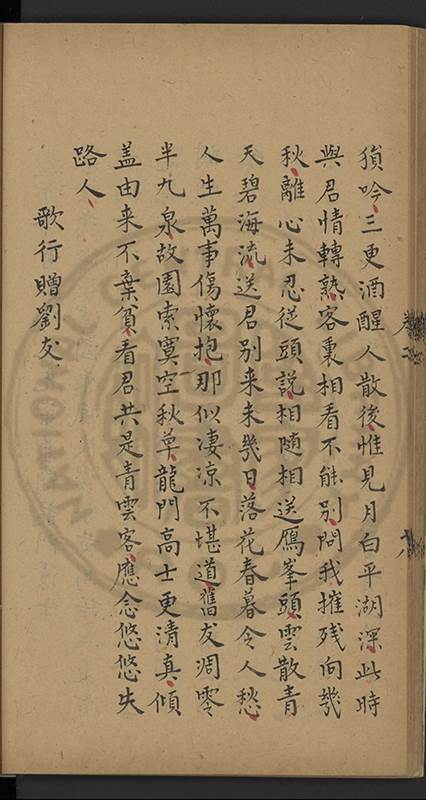 須吟三更酒醒人散後惟見月白平湖深此時
與君情轉熟客裏相看不能別問我摧殘向幾
秋離心未忍從頭說相隨相送鴈峯頭雲散青
天碧海流送君別来未幾日落花春暮令人愁
人生萬事傷懷抱那似凄凉不堪道舊友凋零
半九泉故園索寞空秋草龍門高士更清真傾
盖由来不棄貧看君共是青雲客應念悠悠失
路人
歌行贈劉友